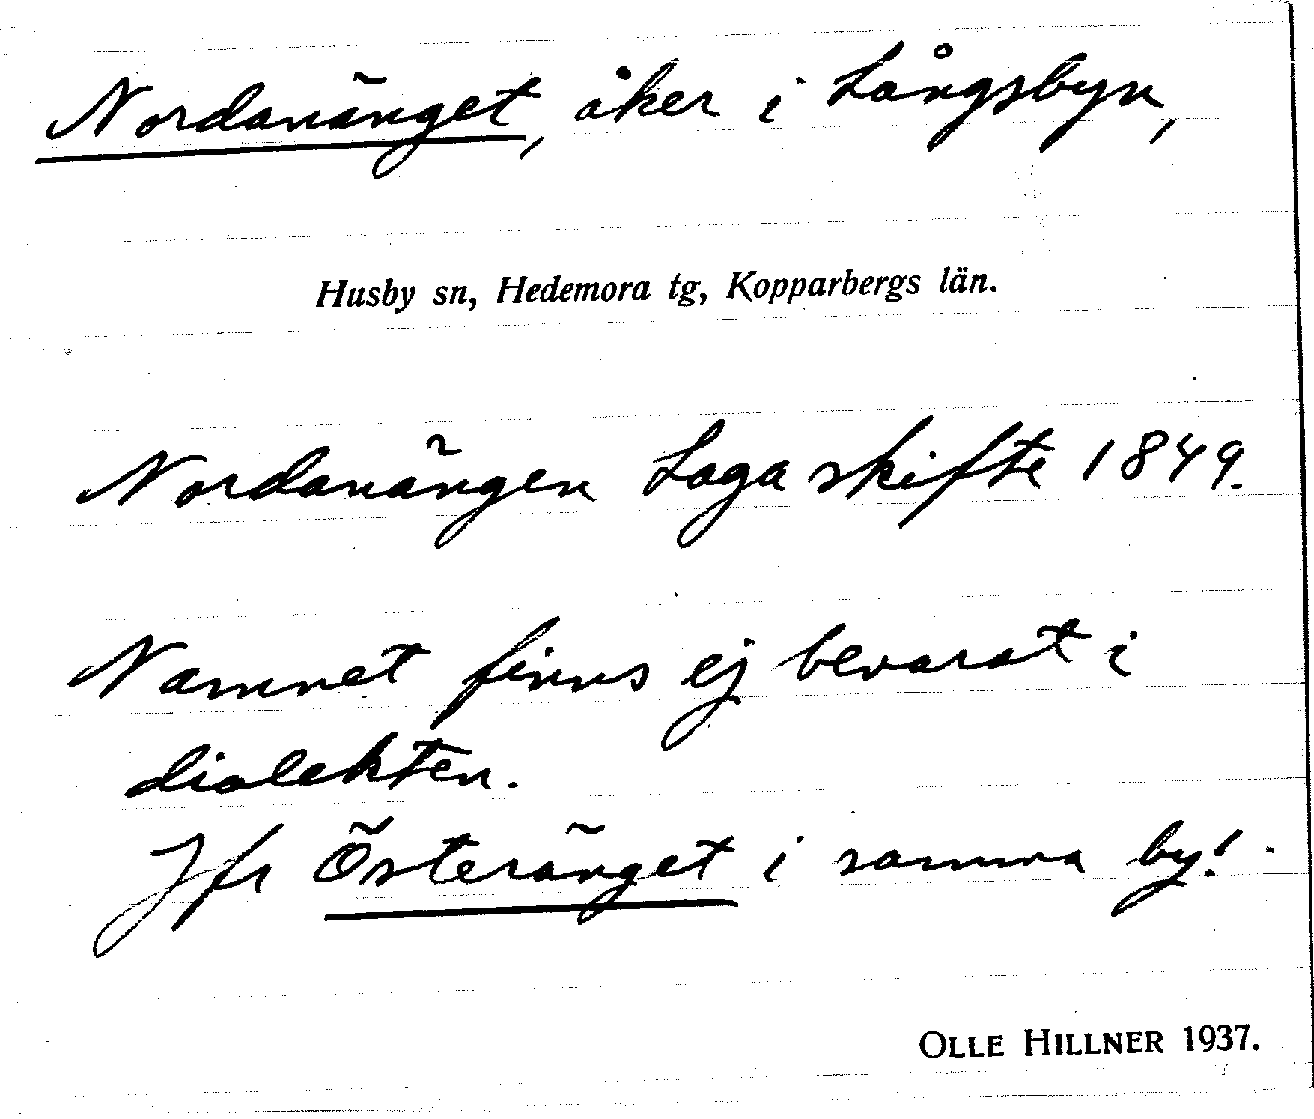 Nordanänget, åker i Långsbyn,
Husby sn, Hedemora tg, Kopparbergs län.
Nordanängen Laga skifte 1849.
Namnet finns ej bevarat i
dialekten.
Jfr Österänget i samma by!
OLLE HILLNER 1937.